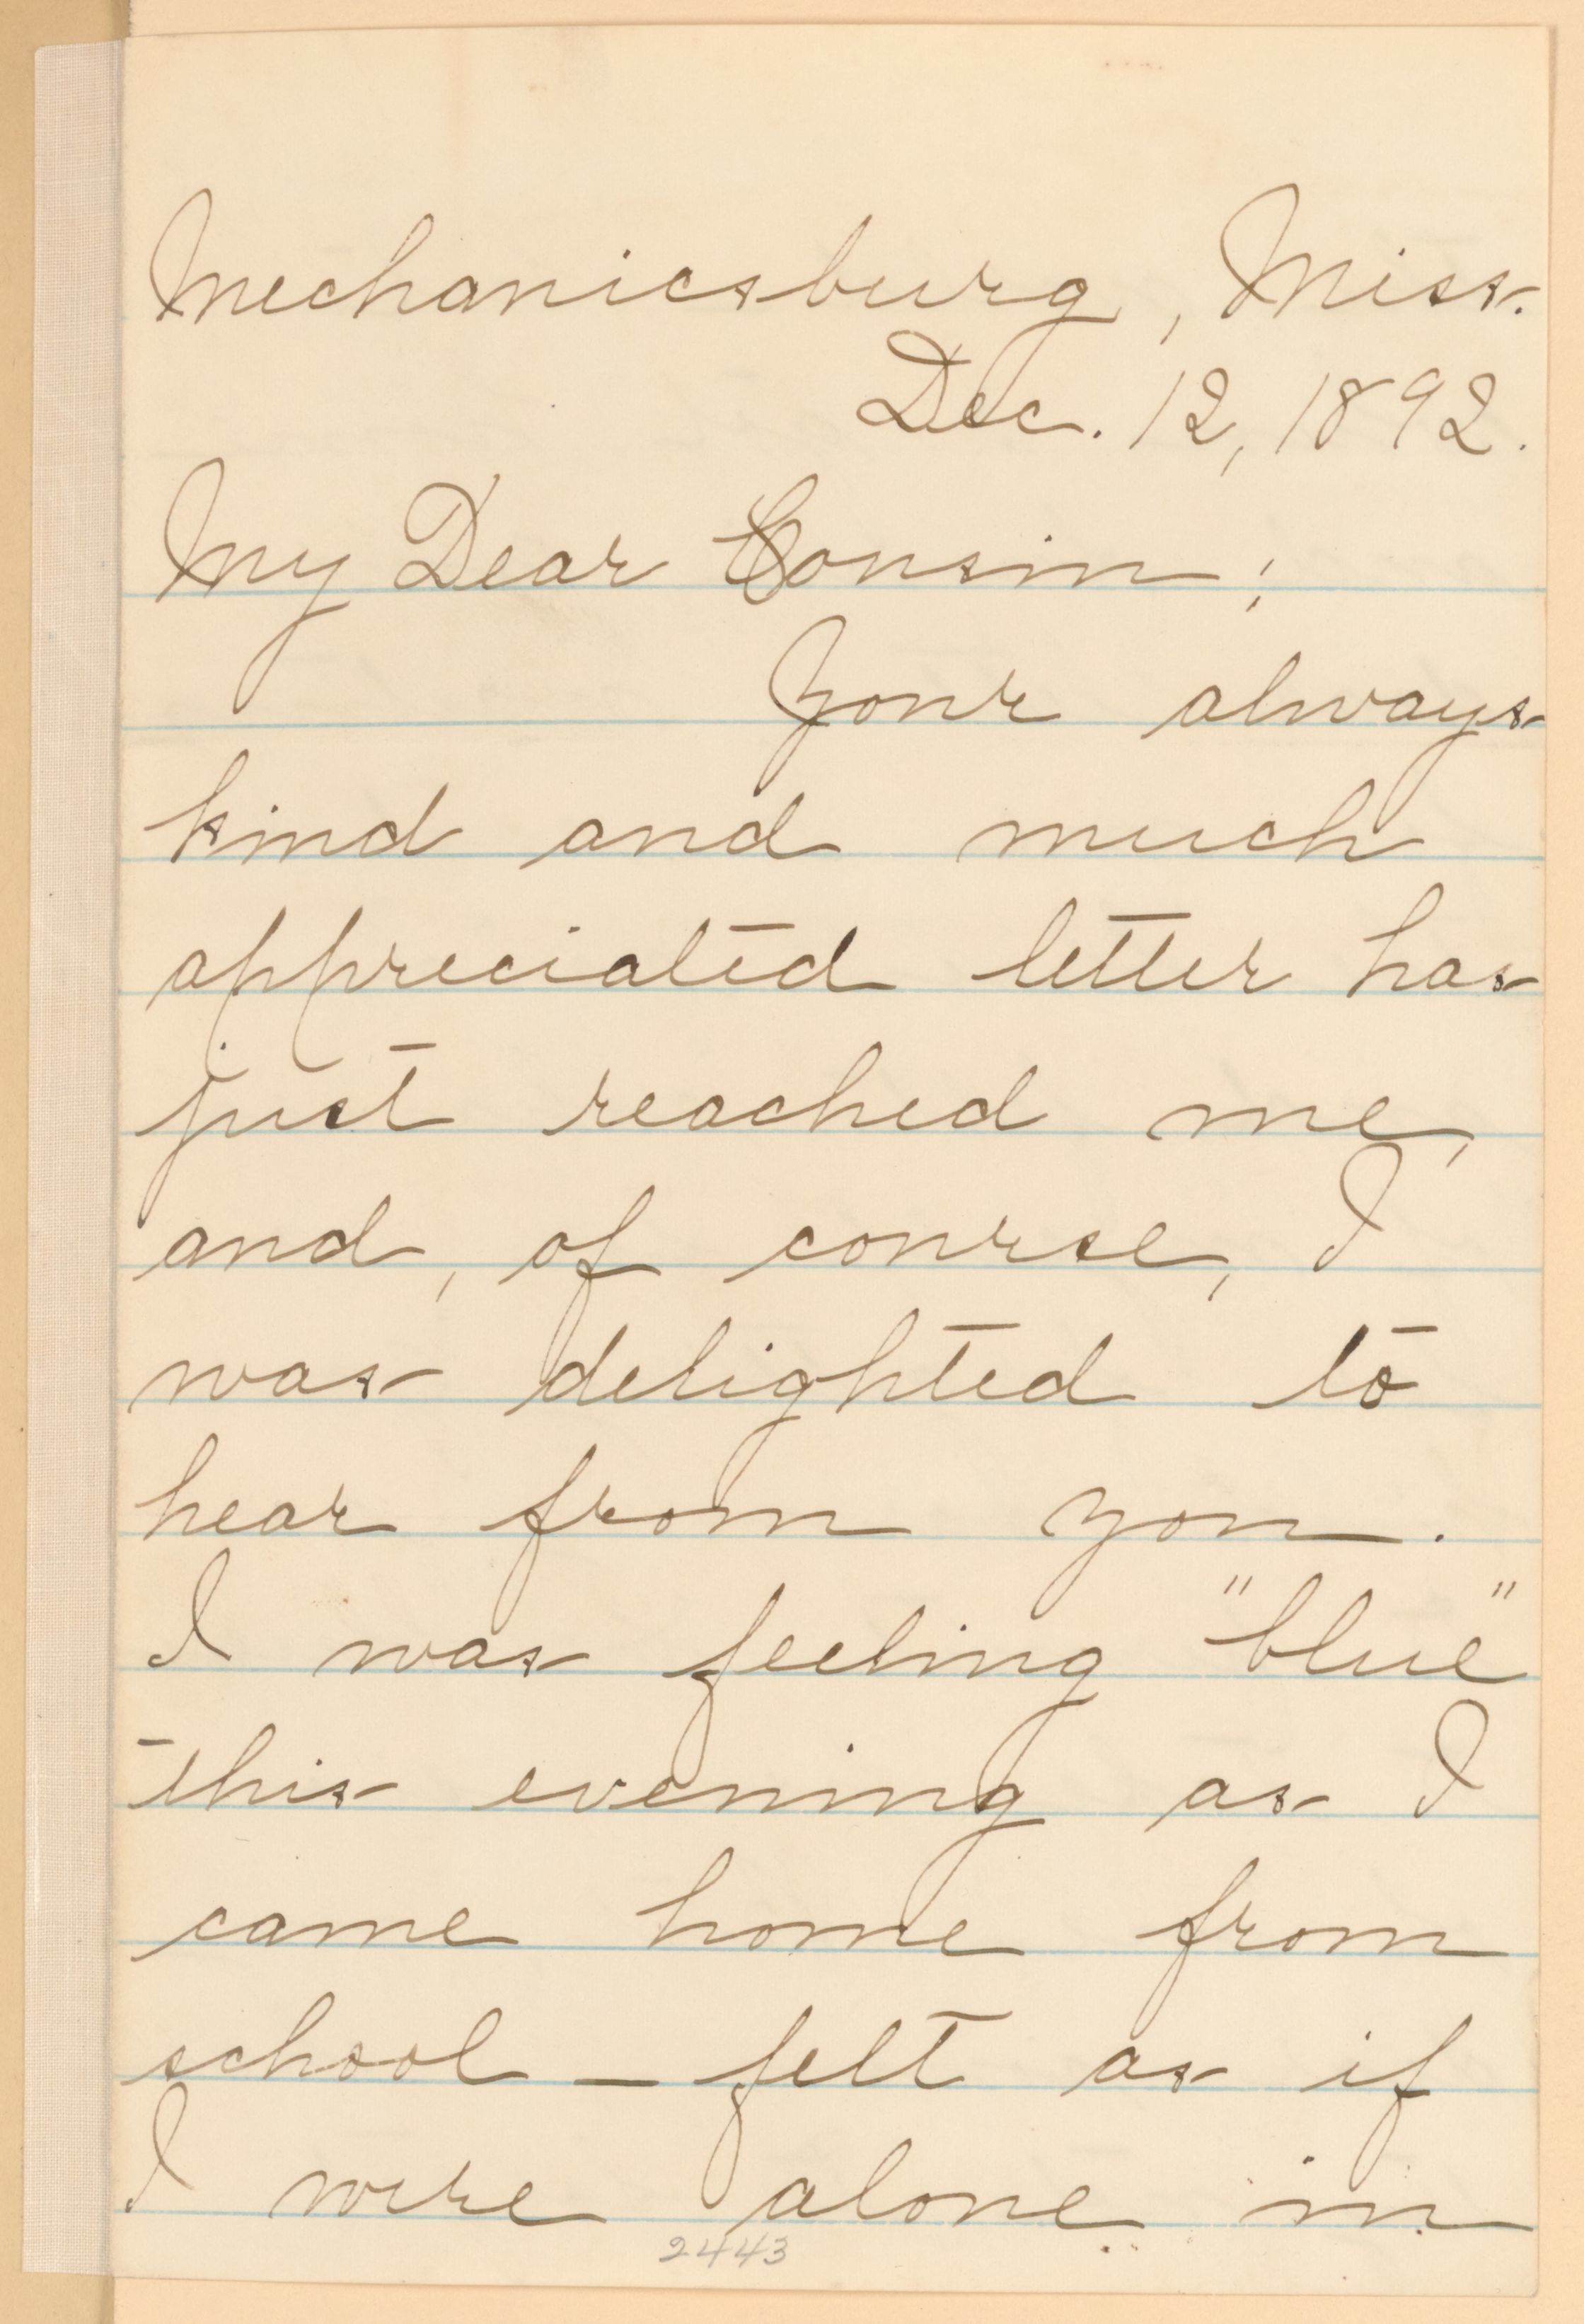 Mechanicsburg, Miss.
Dec. 12, 1892.
My Dear Cousin;
Your always
kind and much
appreciated letter has
just reached me,
and, of course, I
was delighted to
hear from you.
I was feeling "blue"
this evening as I
came home from
school — felt as if
I were alone in
2443